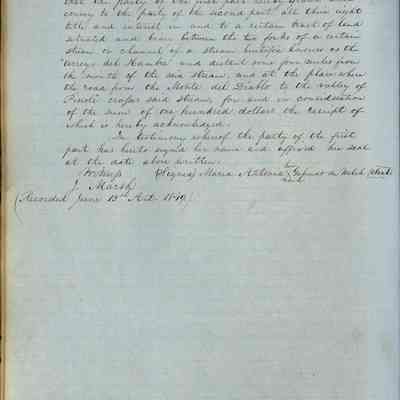 that the party of the first part hereby grants and
convey to the party of the second part all their right
title and interest in and to a certain tract of land
situated and being between the two forks of a certain
stream or channel of a stream heretofore known as the
"arroyo del Hambre" and distant some four miles from
the mouth of the said stream, and at the place where
the road from the Monte del Diablo to the valley of
Pinole crosses said stream, for and in consideration
of the sum of one hundred dollars the receipt of
which is hereby acknowledged.
In testimony whereof the party of the first
part has hereto signed her name and affixed her seal
at the date above written.
Witness (Signed) Maria Antonia her mark Welch (Seal)
J. Marsh
(Recorded June 13th A.D. 1849)